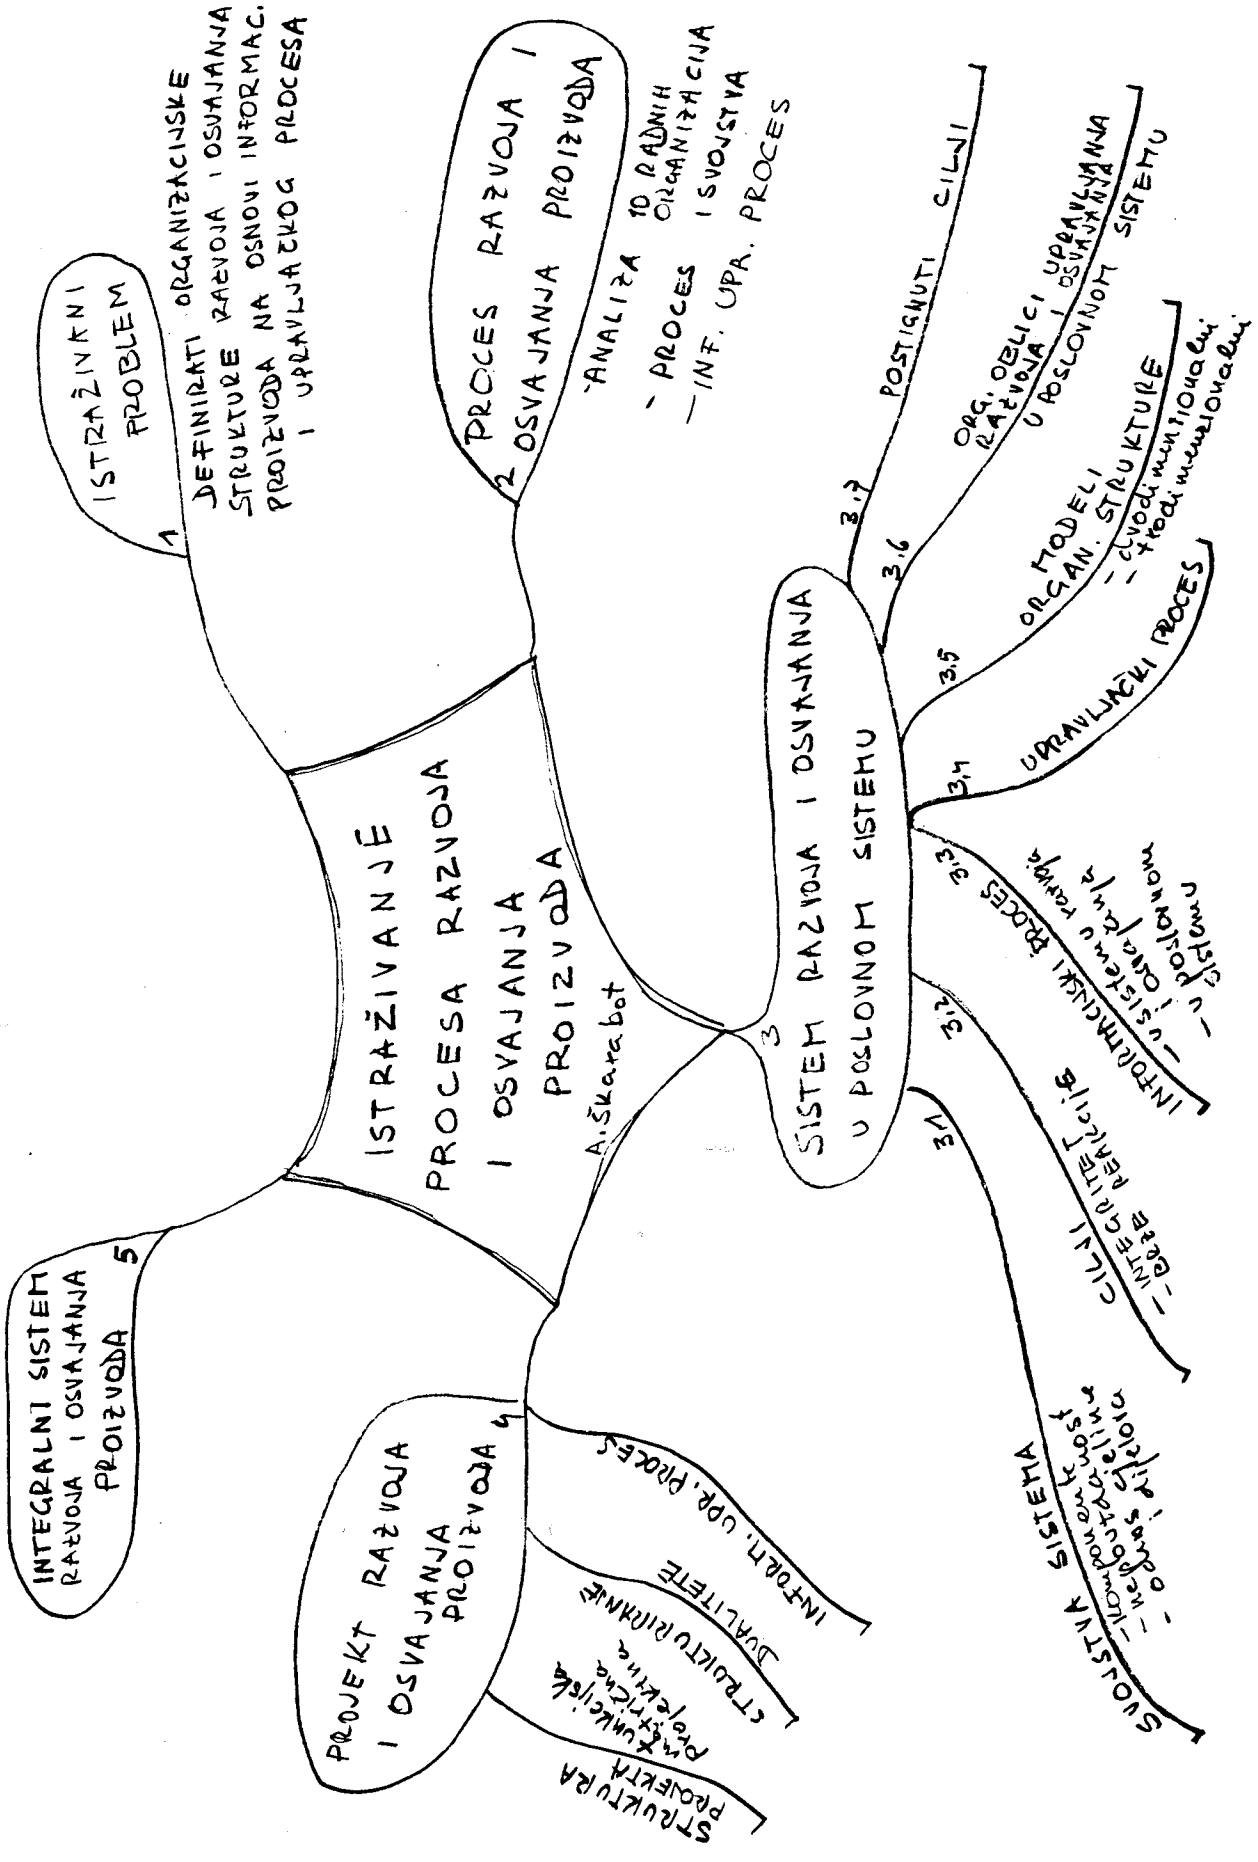 ISTRAŽIVANJE
PROCESA RAZVOJA
I OSVAJANJA
PROIZVODA
A. Škarabot
1
ISTRAŽIVANI
PROBLEM
DEFINIRATI ORGANIZACIJSKE
STRUKTURE RAZVOJA I OSVAJANJA
PROIZVODA NA OSNOVI INFORMAC.
I UPRAVLJAČKOG PROCESA
2
PROCES RAZVOJA I
OSVAJANJA PROIZVODA
- ANALIZA 10 RADNIH
ORGANIZACIJA
- PROCES I SVOJSTVA
- INF. UPR. PROCES
3
SISTEM RAZVOJA I OSVAJANJA
U POSLOVNOM SISTEMU
3.1
SVOJSTVA SISTEMA
- komponentnost
- odnos cjeline
i dijelova
3.2
CILJI
- INTEGRITET
- BRZE REAKCIJE
3.3
INFORMACIJSKI PROCES
- u sistemu razvoja
i osvajanja
- u poslovnom
sistemu
3.4
UPRAVLJAČKI PROCES
3.5
MODELI
ORGAN. STRUKTURE
- dvodimenzionalni
- trodimenzionalni
3.6
ORG. OBLICI UPRAVLJANJA
RAZVOJA I OSVAJANJA
U POSLOVNOM SISTEMU
3.7
POSTIGNUTI CILJI
4
PROJEKT RAZVOJA
I OSVAJANJA
PROIZVODA
INFORM. UPR. PROCES
STRUKTURIRANJE
DVALITETE
STRUKTURA
PROJEKTA
funkcijska
projektna
5
INTEGRALNI SISTEM
RAZVOJA I OSVAJANJA
PROIZVODA